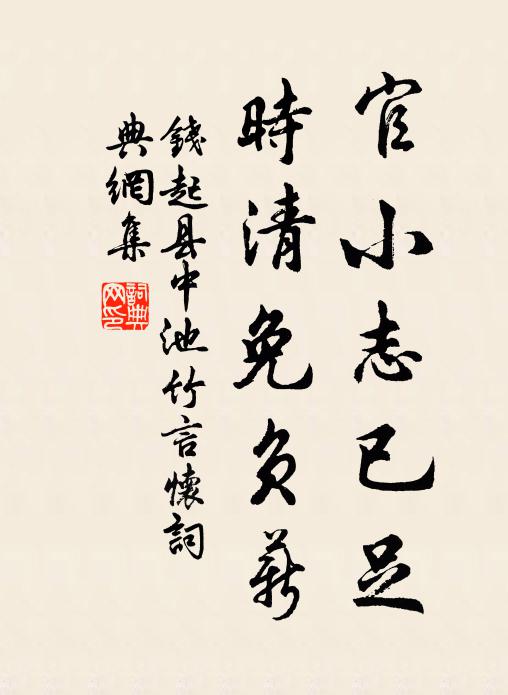 官小志已足
時清免負薪
錢起县中池竹言懷詞
典網集
詞典
网印